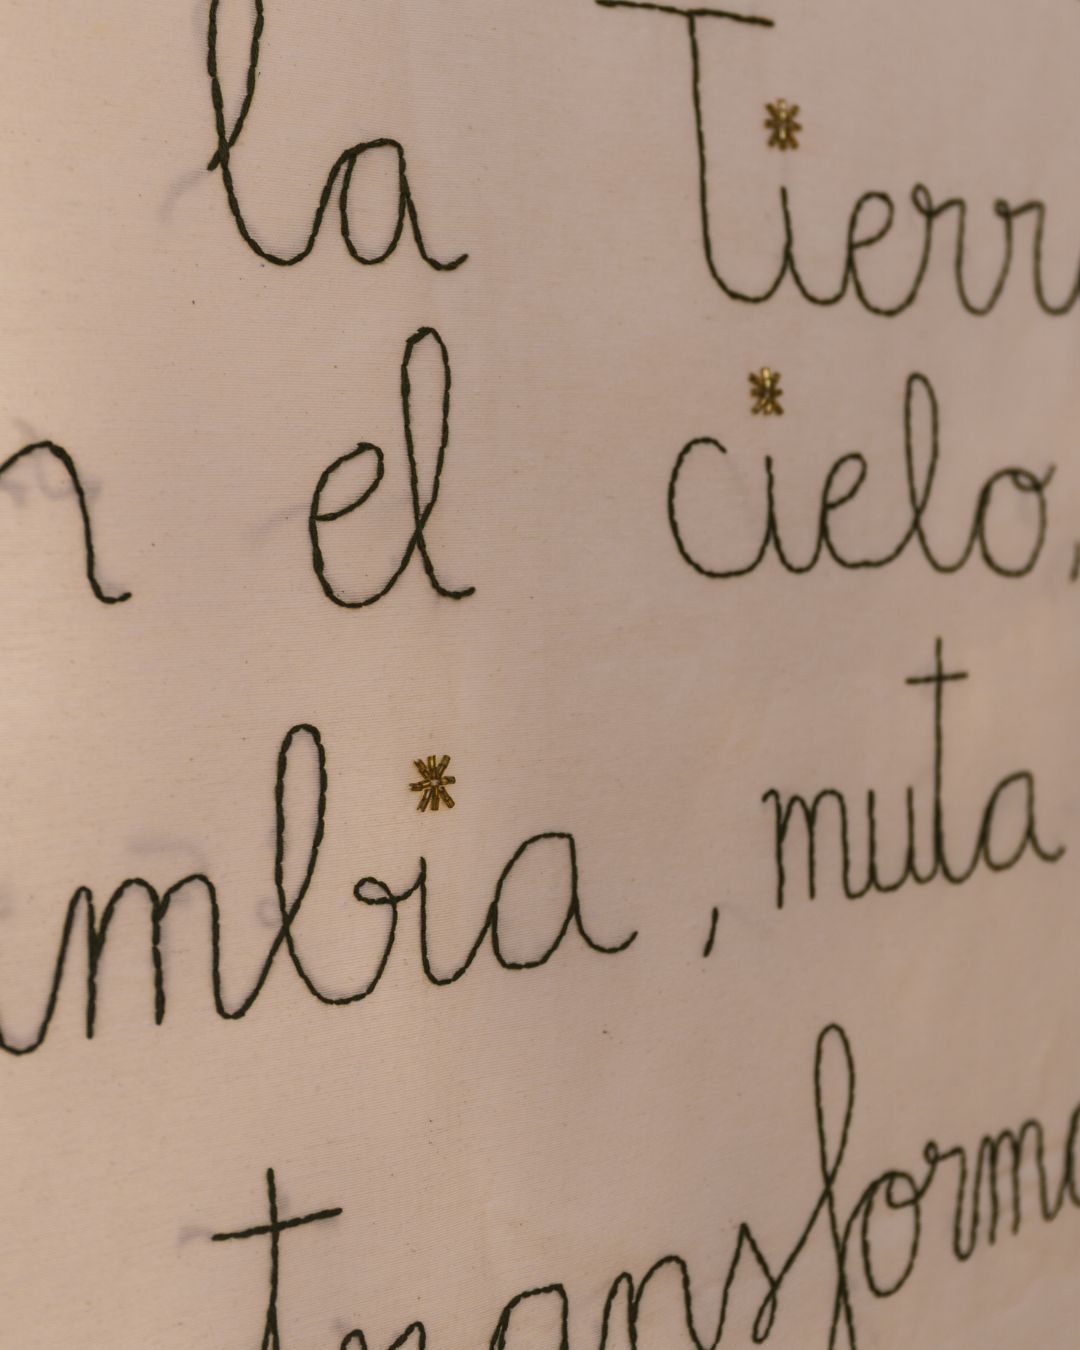 la Tierr
n el cielo,
mbia, muta
transforma